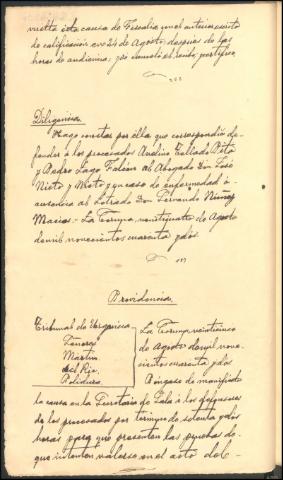 vuelta esta causa de Fiscalía con el anterior escrito
de calificación en 24 de Agosto, despues de las
horas de audiencia; yo Secretario
Diligencia
Hago constar por ella que correspondió de-
fender a los procesados Avelino Tellado Pita
y Pedro Lago Falcón al Abogado Don José
Nieto y Nieto y en caso de enfermedad o
ausencia al Letrado Don Fernando Núñez
Macías.- La Coruña veinticuatro de Agosto
de mil novecientos cuarenta y dos.
Providencia
Tribunal de Urgencia
Martin
del Rio
La Coruña veinticinco
de Agosto de mil nove-
cientos cuarenta y dos
Póngase de manifiesto
la causa en la Secretaría de Sala a los defensores
de los procesados por término de setenta y dos
horas para que presenten las pruebas de
que intenten valerse en el acto del-